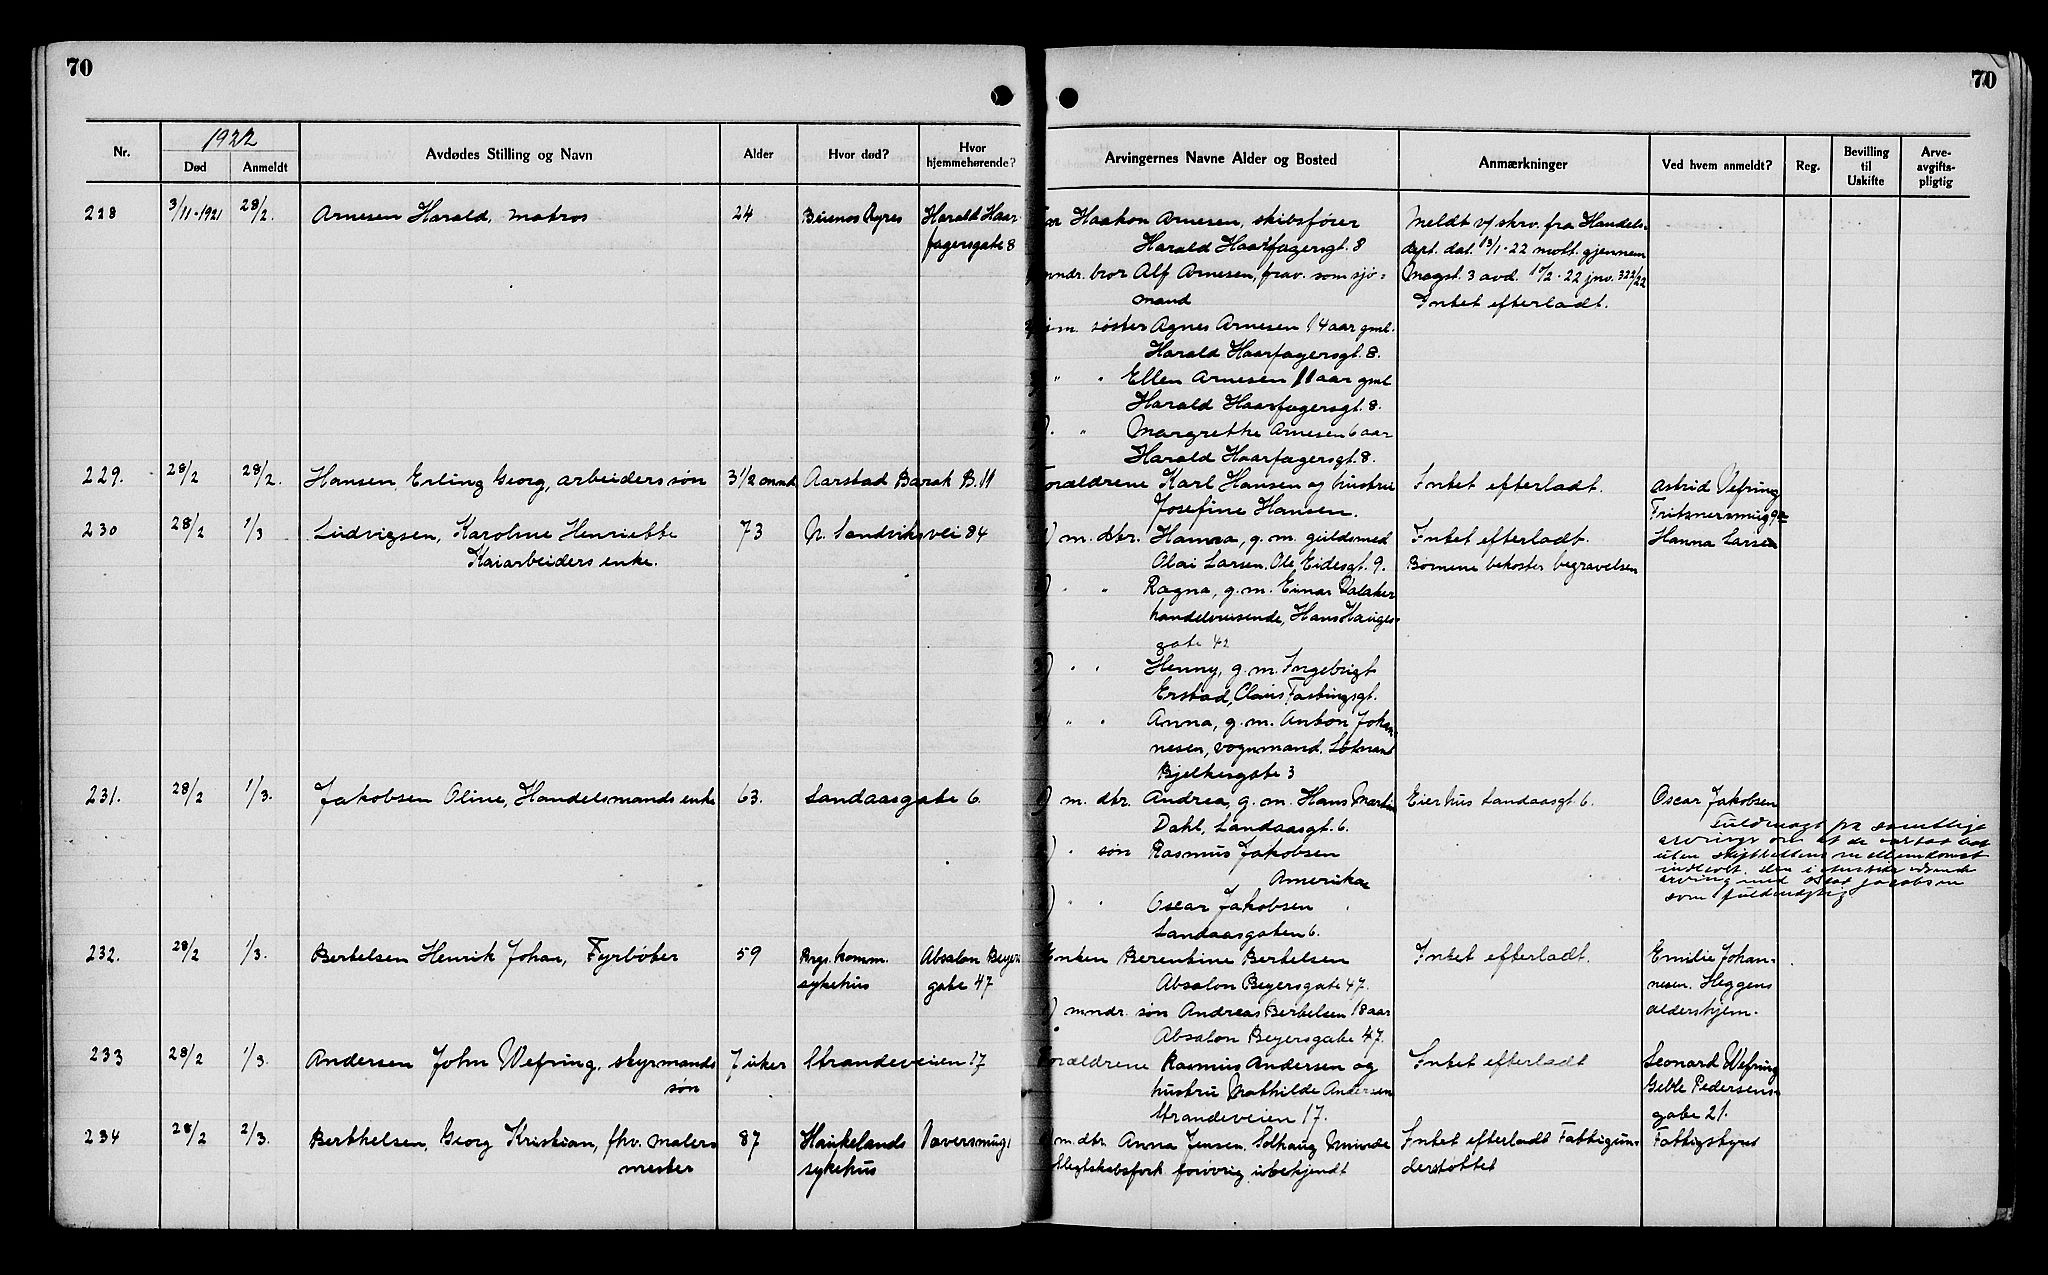 70
70
Nr. 1922 Avdødes Stilling og Navn Alder Hvor død? Hvor hjemmehørende? Arvingernes Navne Alder og Bosted Anmærkninger Ved hvem anmeldt? Reg. Bevilling til Uskifte Arve-avgifts-pligtig
Død Anmeldt
228 3/11-1921 28/2. Arnesen Harald, matros 24 Buenos Ayres Harald Haar- Far Haakon Arnesen, skibsfører Meldt v/ skriv. fra Handels-
fagersgate 8 Harald Haarfagersgt. 8 dept. dat. 13/1-22 mott. gjennem
mndr. bror Alf Arnesen, frav. som sjø- Magst. 3 avd. 17/2-22 jnv. 322/22
mand Intet efterladt.
m. søster Agnes Arnesen 14 aar gml.
Harald Haarfagersgt. 8.
" " Ellen Arnesen 11 aar gml
Harald Haarfagersgt. 8.
" Margrethe Arnesen 6 aar
Harald Haarfagersgt. 8.
229. 28/2 28/2. Hansen, Erling Georg, arbeiders søn 3 1/2 mnd Aarstad Barak B. 11 Forældrene Karl Hansen og hustru Intet efterladt. Astrid Vefring
Josefine Hansen. Fritznersmug 9
230 28/2 1/3 Ludvigsen, Karoline Henriette 73 N. Sandviksvei 84 1) m. dtr. Hanna, g. m. guldsmed Intet efterladt. Hanna Larsen
Kaiarbeiders enke. Olai Larsen, Ole Eidesgt. 9. Børnene bekoster begravelsen
" " Ragna, g. m. Einar Valaker
handelsreisende, Hans Hauges-
gate 42
" " Henny, g. m. Ingebrigt
Erstad, Claus Fastingsgt.
" " Anna, g. m. Anton Johan-
nesen, vognmand.
Bjelkesgate 3
231. 28/2 1/3. Jakobsen Oline, Handelsmands enke 63. Landaasgate 6. 1) m. dtr. Andrea, g. m. Hans Martin Eier hus Landaasgt. 6. Oscar Jakobsen
Dahl, Landaasgt. 6. Fuldmagt fra samtlige
" søn Rasmus Jakobsen arvinger om at de
Amerika uten skifterettens mellemkomst
" " Oscar Jakobsen arving med Oscar Jacobsen
Landaasgaten 6. som fuldmægtig
232. 28/2 1/3. Bertelsen Henrik Johan, Fyrbøter 59 Brgs. komm. Absalon Beyers Enken Berentine Bertelsen Intet efterladt. Emilie Johan-
sykehus gate 47 Absalon Beyersgate 47. nesen. Heggens
1) mndr. søn Andreas Bertelsen 18 aar aldershjem.
Absalon Beyersgate 47.
233 28/2 1/3. Andersen John Wefring, styrmands 7 uker Strandeveien 17 Forældrene Rasmus Andersen og Intet efterladt Leonard Wefring
søn hustru Mathilde Andersen Geble Pedersens-
Strandeveien 17. gate 21.
234 28/2 2/3. Berthelsen, Georg Kristian, fhv. maler- 87 Haukelands Vaversmug 1) m. dtr. Anna Jensen, Solhaug Minde Intet efterladt Fattigun- Fattigstyret
mester sykehus Slegtskabsforh. forøvrig ubekjendt derstøttet